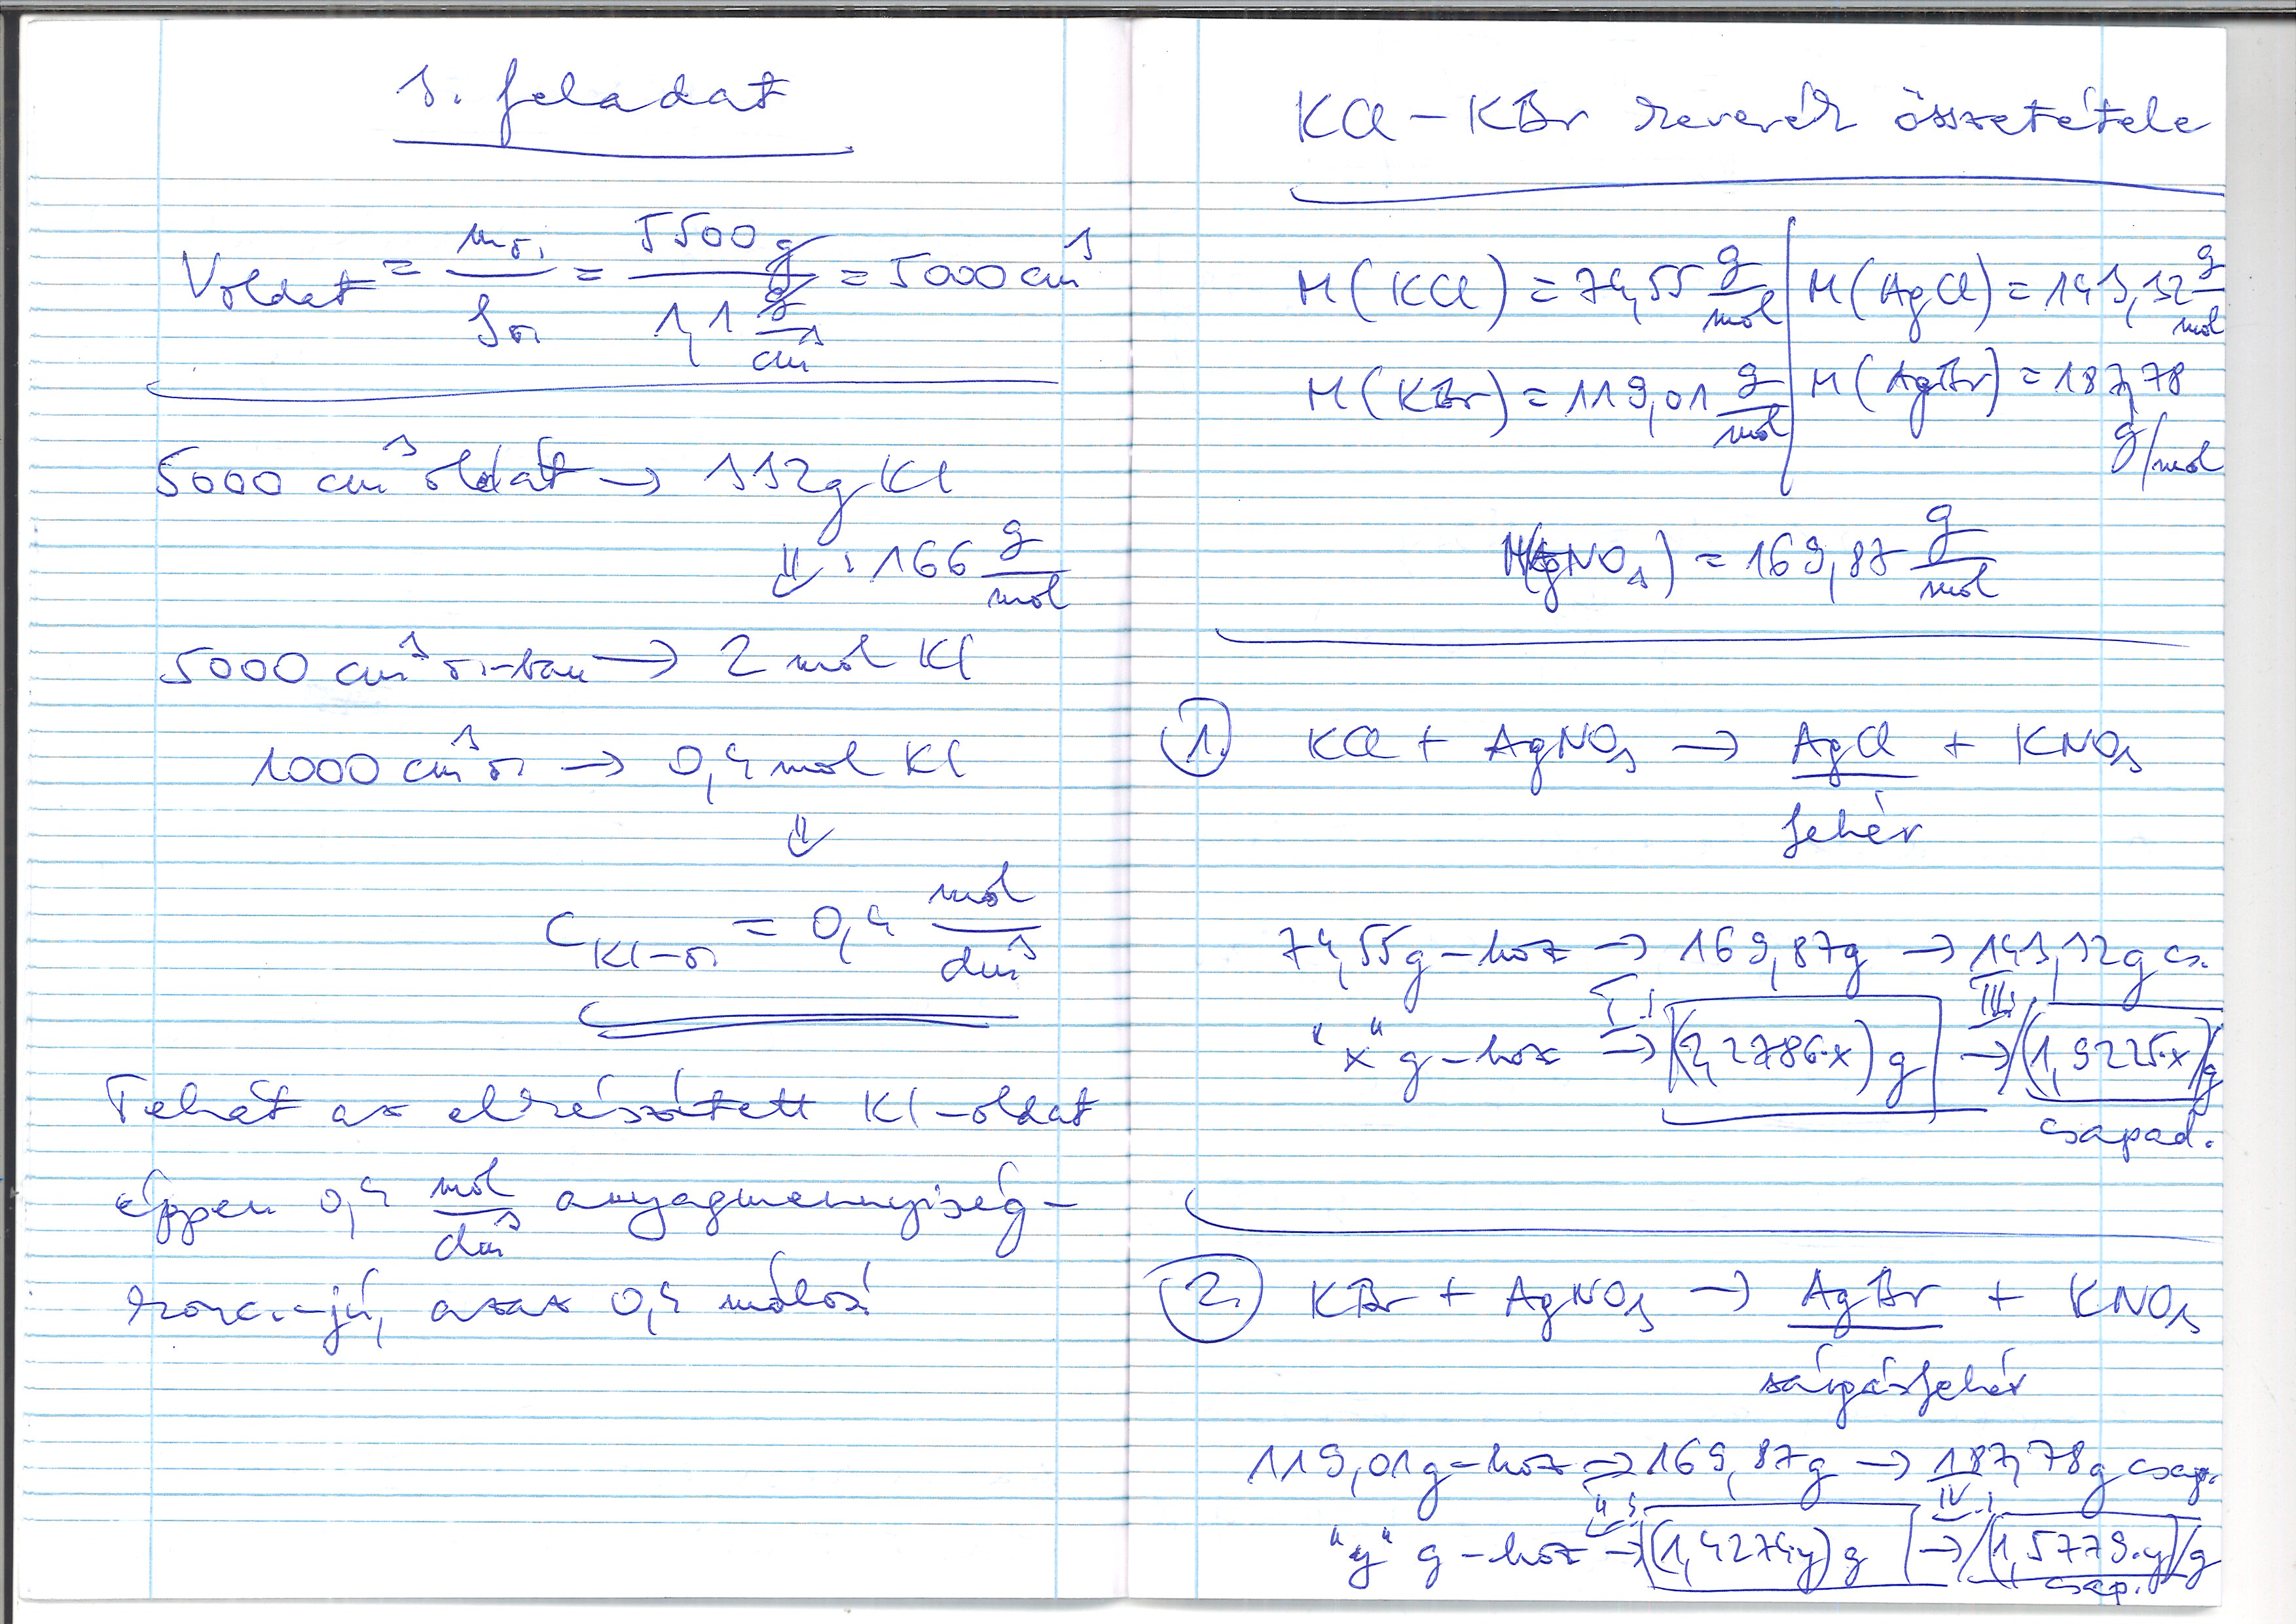 3. feladat
Voldat = mo. / ρo. = 5500 g / 1,1 g/cm³ = 5000 cm³
5000 cm³ oldat → 332g KI
⇓ : 166 g/mol
5000 cm³ o.-ban → 2 mol KI
1000 cm³ o. → 0,4 mol KI
⇓
C KI-o. = 0,4 mol/dm³
Tehát az elkészített KI-oldat
éppen 0,4 mol/dm³ anyagmennyiség-
konc.-jú, azaz 0,4 mólos!
KCl – KBr keverék összetétele
M(KCl) = 74,55 g/mol | M(AgCl) = 143,32 g/mol
M(KBr) = 119,01 g/mol | M(AgBr) = 187,78 g/mol
M(AgNO3) = 169,87 g/mol
1. KCl + AgNO3 → AgCl + KNO3
fehér
74,55g-hoz → 169,87g → 143,32g cs.
"x" g-hoz I. → (2,2786·x) g III. → (1,9225·x) g
csapad.
2. KBr + AgNO3 → AgBr + KNO3
sárgásfehér
119,01g-hoz → 169,87g → 187,78g csap.
"y" g-hoz II. → (1,4274y) g IV. → (1,5779·y) g
csap.